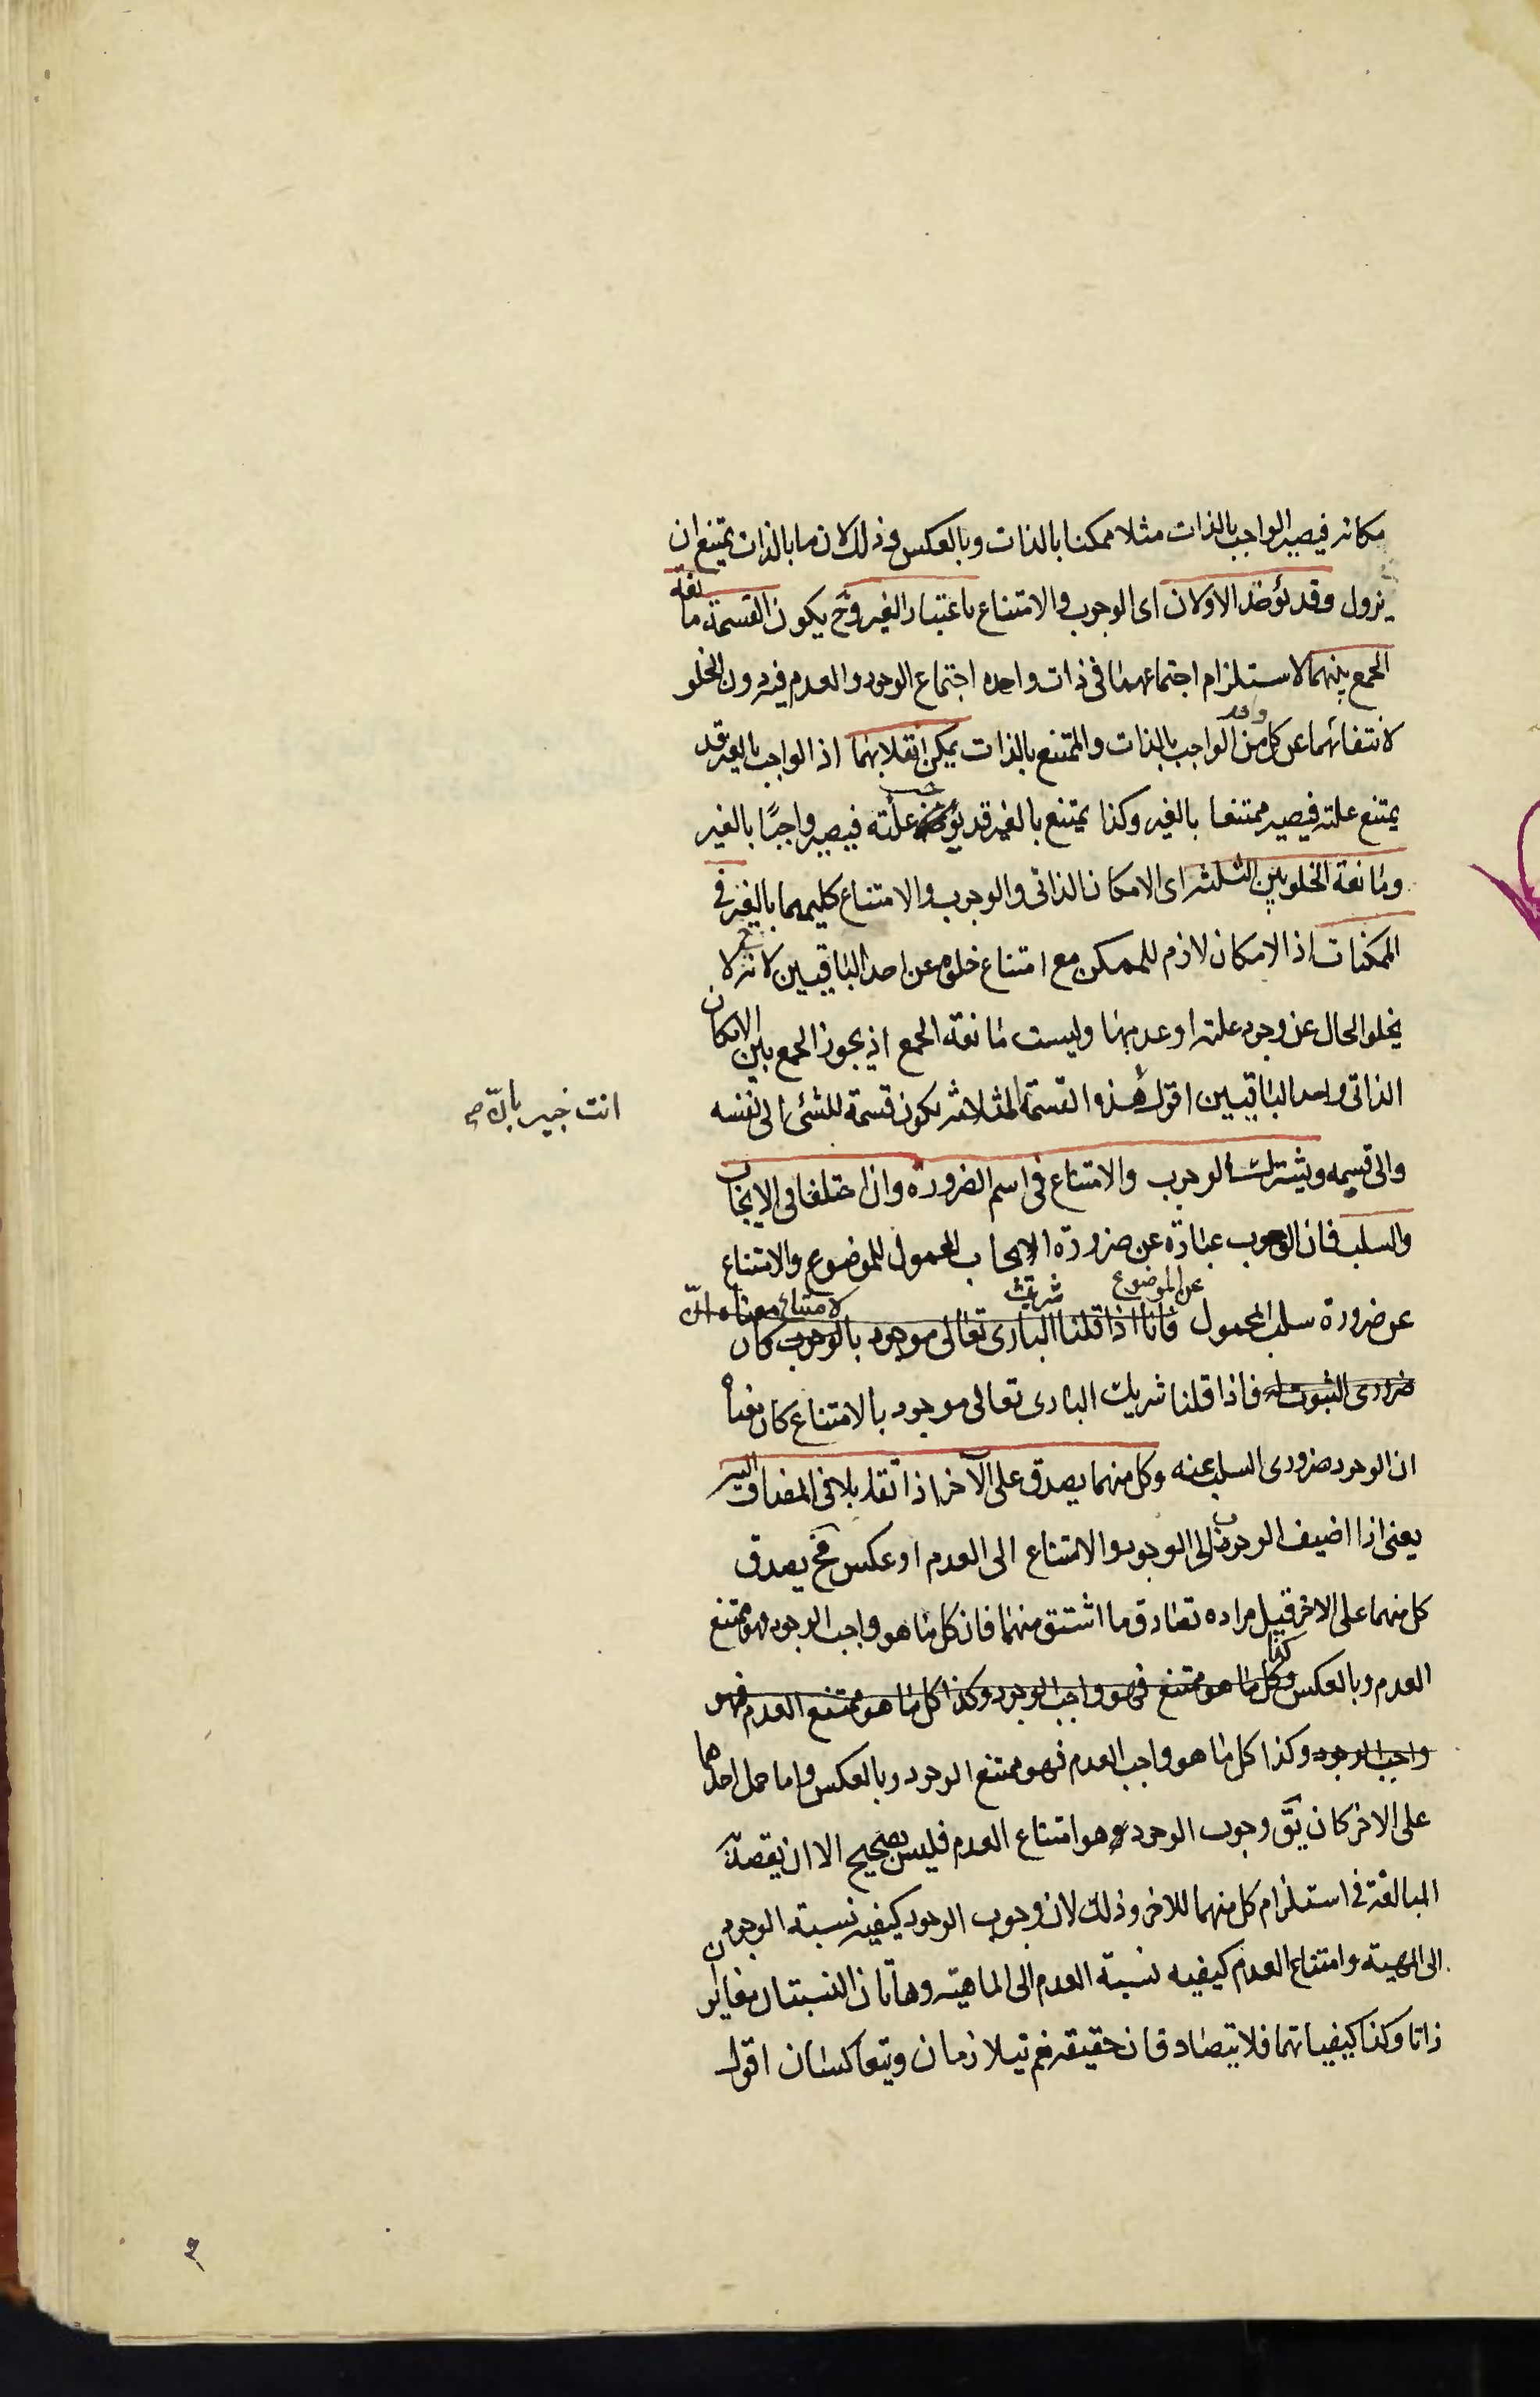 مكانه فيصير الواجب بالذات مثلا ممكنا بالذات وبالعكس وذلك لان ما بالذات يمتنع ان
يزول وقد يؤخذ الاولان اى الوجوب والامتناع باعتبار الغير وح يكون القسمة مانعة
الجمع بينهما لاستلزام اجتماعهما فى ذات واحده اجتماع الوجود والعدم فيه دون الخلو
لانتفائهما عن كل واحد من الواجب بالذات والممتنع بالذات يمكن انقلابهما اذ الواجب بالغير قد
يمتنع علته فيصير ممتنعا بالغير وكذا يمتنع بالغير قد علته فيصير واجبًا بالغير
ومانعة الخلو بين الثلثه اى الامكان الذاتى والوجوب والامتناع كليهما بالغير فى
الممكنات اذ الامكان لازم للممكن مع امتناع خلوه عن احد الباقيين لانه لا
يخلوا الحال عن وجود علته او عدمها وليست مانعة الجمع اذ يجوز الجمع بين الامكان
الذاتى واحد الباقيين اقول هذه القسمة المثلاثه يكون قسمة للشئ الى نفسه
انت خبير بانّه
والى قسيمه ويشترك الوجوب والامتناع فى اسم الضرورة وان اختلفا فى الايجاب
والسلب فان الوجوب عبارة عن ضرورة الايجاب المحمول للموضوع والامتناع
عن ضرورة سلب المحمول عن الموضوع فانا اذا قلنا شريك البارى تعالى موجود بالوجوب لامتناع معناه انّ كان
ضرورى الثبوت له فاذا قلنا شريك البارى تعالى موجود بالامتناع كان معناه
ان الوجود ضرورى السلب عنه وكل منهما يصدق على الآخر اذا تقابلا فى المضاف اليه
يعنى اذا اضيف الوجوب الى الوجود والامتناع الى العدم او عكس فح يصدق
كل منهما على الاخر قيل مراده تصادق ما اشتق منهما فان كل ما هو واجب الوجود فهو ممتنع
العدم وبالعكس وكذا كل ما هو ممتنع فهو واجب الوجود وكذا كل ما هو ممتنع العدم فهو
واجب الوجود وكذا كل ما هو واجب العدم فهو ممتنع الوجود وبالعكس واما حمل احدهما
على الاخر كان يق وجوب الوجود هو امتناع العدم فليس بصحيح الا ان يقصد
المبالغة فى استلزام كل منهما للاخر وذلك لان وجوب الوجود كيفيه نسبة الوجود
الى المهية وامتناع العدم كيفيه نسبة العدم الى الماهية وهاتان النسبتان متغايران
ذاتا وكذا كيفياتهما فلا يتصادقان حقيقه نعم يتلازمان ويتعاكسان اقول